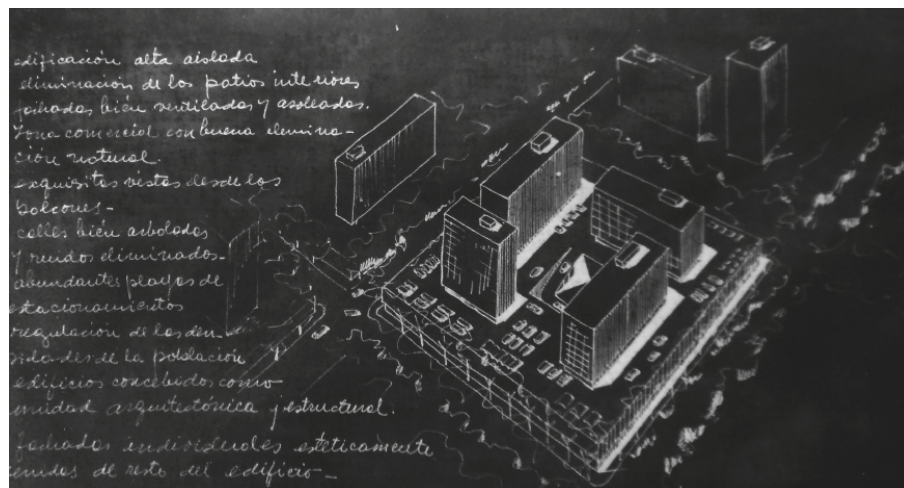 edificación alta aislada
eliminación de los patios interiores
fachadas bién ventiladas y asoleadas.
zona comercial con buena elumina-
ción natural.
exquisitas vistas desde los
balcones-
calles bien arboladas
y ruidos eliminados-
abundantes playas de
estacionamientos
regulación de las den-
sidades de la población
edificios concebidos como
unidad arquitectónica y estructural.
fachadas individuales estéticamente
de resto del edificio-